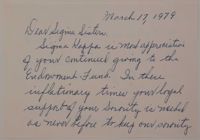 March 17, 1979
Dear Sigma Sister,
Sigma Kappa is most appreciative
of your continued giving to the
Endowment Fund. In these
inflationary times your loyal
support of your sorority is needed
as never before to keep our sorority